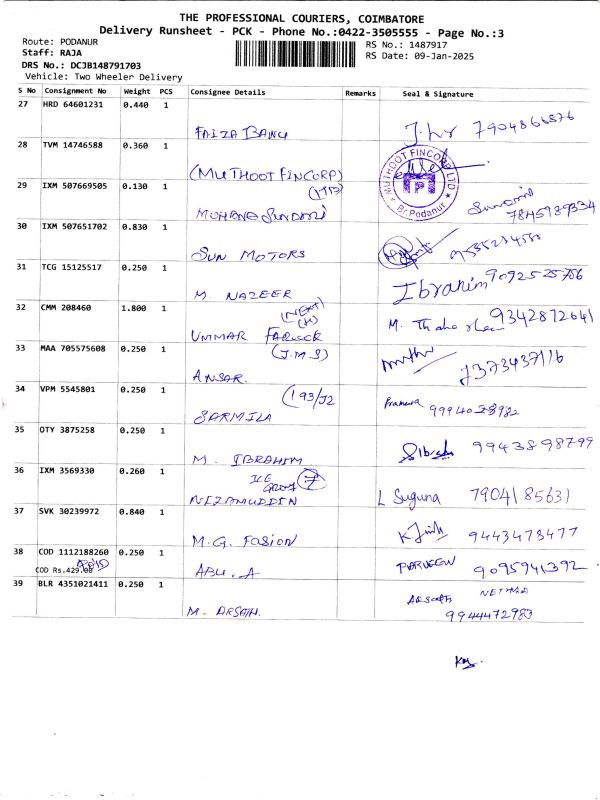 THE PROFESSIONAL COURIERS, COIMBATORE
Delivery Runsheet - PCK - Phone No.:0422-3505555 - Page No.:3
Route: PODANUR
RS No.: 1487917
Staff: RAJA
RS Date: 09-Jan-2025
DRS No.: DCJB148791703
Vehicle: Two Wheeler Delivery
S No Consignment No Weight PCS Consignee Details Remarks Seal & Signature
27 HRD 64601231 0.440 1
FAIZA BANU
28 TVM 14746588 0.360 1
(MUTHOOT FINCORP)
MUTHOOT FINCORP LTD
Br.Podanur
29 IXM 507669505 0.130 1
MOHANA SUNDARI
30 IXM 507651702 0.830 1
SUN MOTORS
31 TCG 15125517 0.250 1
M. NAZEER Ibrahim 9092525786
32 CMM 208460 1.800 1
(NEXT)
(H)
UMMAR FAROOK M. 9342872641
33 MAA 705575608 0.250 1
(J.M.S)
ANSAR. 7373437116
34 VPM 5545801 0.250 1
(193/J2
SARMILA
35 OTY 3875258 0.250 1
M. IBRAHIM 9943898799
36 IXM 3569330 0.260 1
ICE
7
NIZAMUDDIN L Suguna 7904185631
37 SVK 30239972 0.840 1
M.G. FASION 9443473477
38 COD 1112188260 0.250 1
COD Rs.429.00 PAID
ABU.A PARVEEN 9095941392
39 BLR 4351021411 0.250 1
M. ARSATH. 9944472983